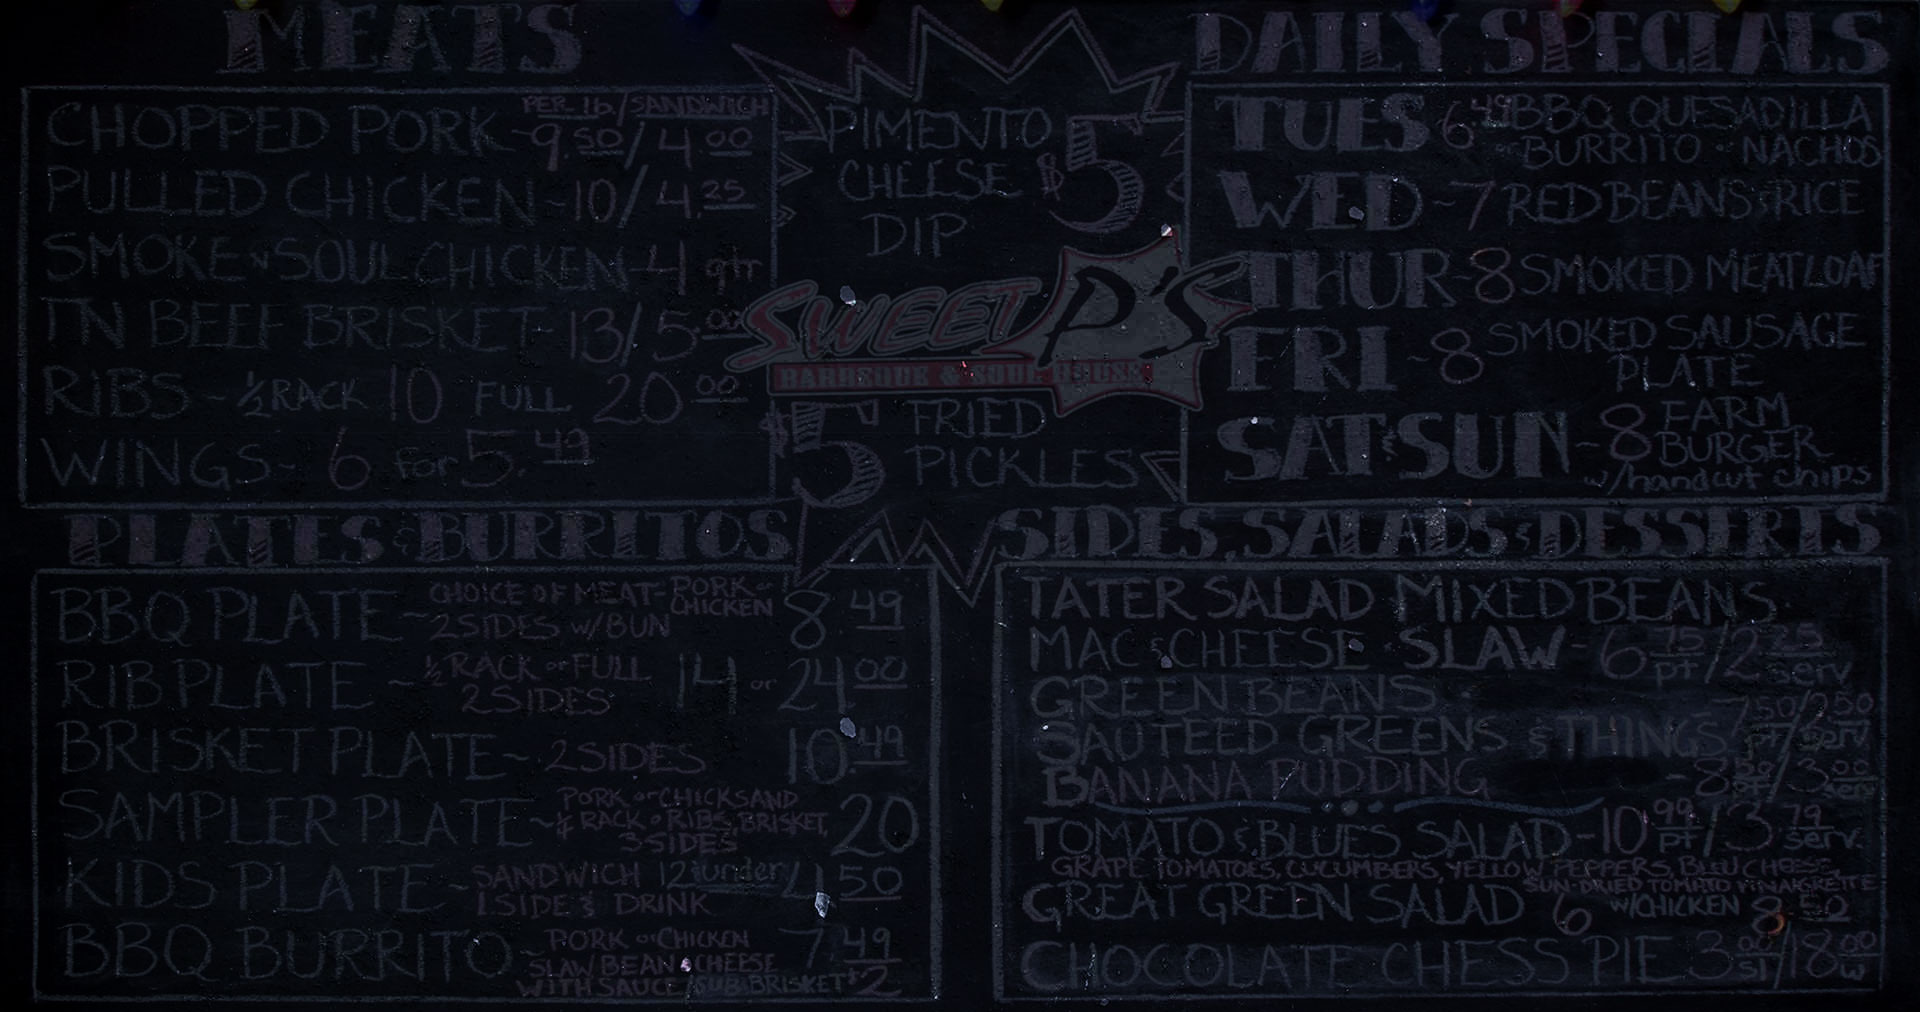 MEATS
PER lb/SANDWICH
CHOPPED PORK ~ 9.50/4.00
PULLED CHICKEN ~ 10/4.25
SMOKE N SOUL CHICKEN ~ 4 qtr
TN BEEF BRISKET ~ 13/5.00
RIBS ~ ½ RACK 10 FULL 20.00
WINGS ~ 6 for 5.49
PIMENTO
CHEESE $5
DIP
SWEET P'S
BARBEQUE & SOUL HOUSE
$5 FRIED
PICKLES
DAILY SPECIALS
TUES 6.49 BBQ QUESADILLA
or BURRITO or NACHOS
WED ~ 7 RED BEANS & RICE
THUR ~ 8 SMOKED MEATLOAF
FRI ~ 8 SMOKED SAUSAGE
PLATE
SAT & SUN ~ 8 FARM
BURGER
w/handcut chips
PLATES & BURRITOS
BBQ PLATE ~ CHOICE OF MEAT - PORK or CHICKEN 8.49
2 SIDES w/BUN
RIB PLATE ~ ½ RACK or FULL 14 or 24.00
2 SIDES
BRISKET PLATE ~ 2 SIDES 10.49
SAMPLER PLATE ~ PORK or CHICK SAND 20
¼ RACK o RIBS, BRISKET,
3 SIDES
KIDS PLATE ~ SANDWICH 12 & under 4.50
1 SIDE & DRINK
BBQ BURRITO ~ PORK or CHICKEN 7.49
SLAW BEAN CHEESE
WITH SAUCE/SUB BRISKET +2
SIDES, SALADS & DESSERTS
TATER SALAD MIXED BEANS
MAC & CHEESE SLAW - 6.75 pt/2.25 serv
GREEN BEANS
SAUTEED GREENS & THINGS 7.50 pt/2.50 serv
BANANA PUDDING - 8 pt/3.00 serv
TOMATO & BLUES SALAD - 10.99 pt/3.79 serv.
GRAPE TOMATOES, CUCUMBERS, YELLOW PEPPERS, BLEU CHEESE,
SUN-DRIED TOMATO VINAIGRETTE
GREAT GREEN SALAD 6 W/CHICKEN 8.50
CHOCOLATE CHESS PIE 3.00 sl/18.00 w